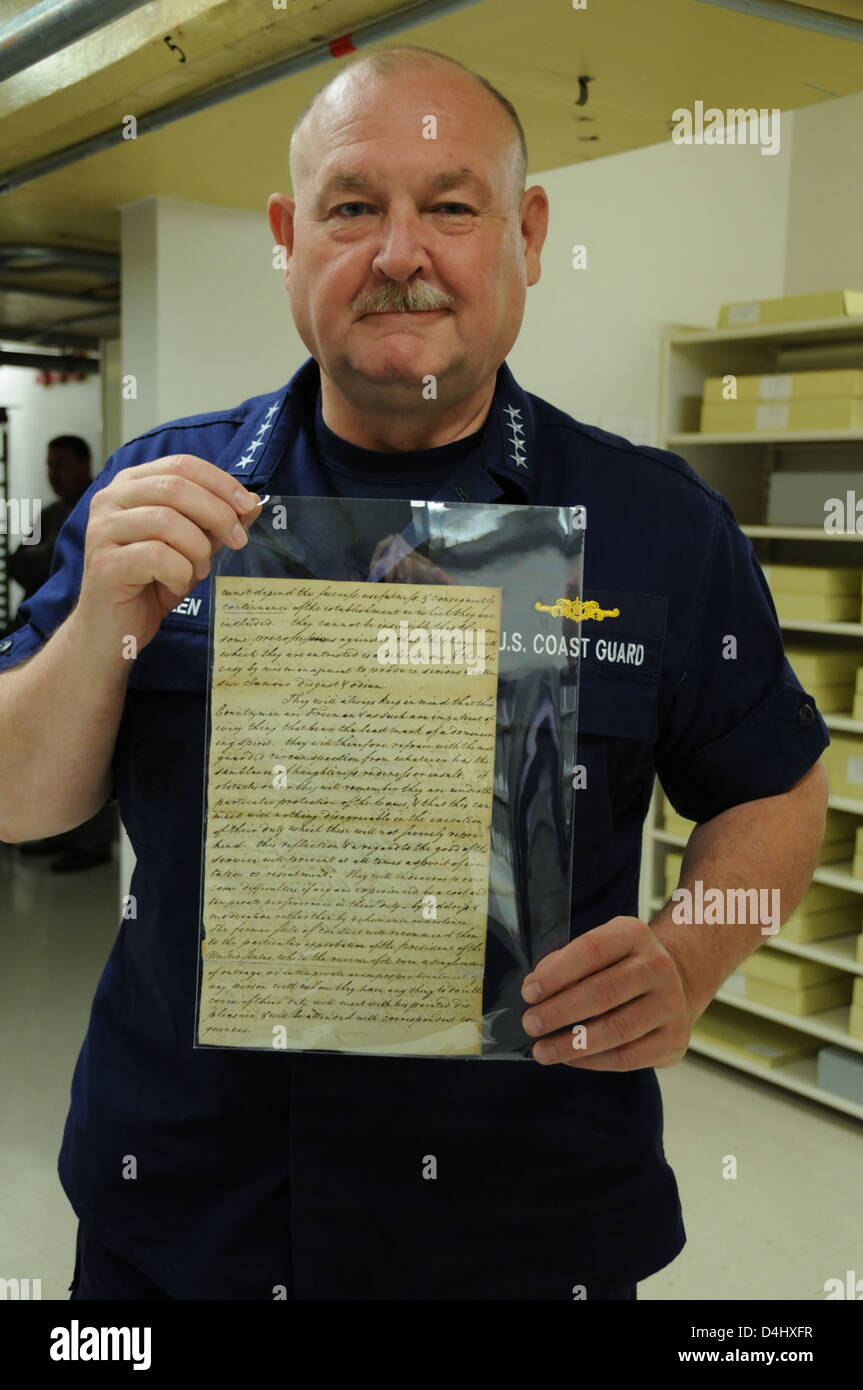 5
LLEN
U.S. COAST GUARD
must depend the success usefulness & consequently
continuance of the establishment in which they are
included. They cannot be
some prepossessions against it that the
which they are entrusted
easy by mismanagement to produce serious & exten
sive clamour disgust & odium.
They will always keep in mind that their
Countrymen are Freemen & as such are impatient of
every thing that bears the least mark of a domineer
ing spirit. They will therefore refrain with the most
guarded circumspection from whatever has the
semblance of haughtiness rudeness or insult. If
obstacles occur they will remember they are under the
particular protection of the Laws, & that they can
meet with nothing disagreeable in the execution
of their duty which these will not severely repre
hend. This reflection & a regard to the good of the
service will prevent at all times a spirit of irri
tation or resentment. They will endeavour to over
come difficulties if any are experienced by a cool and
temperate perseverance in their duty by address &
moderation rather than by vehemence or violence.
The former stile of conduct will recommend them
to the particular approbation of the President of the
United States, while the reverse of it even a single instance
of outrage, or intemperate or improper treatment of
any person with whom they have any thing to do in the
course of their duty will meet with his pointed dis
pleasure, & will be attended with correspondent conse
quences.
alamy
Image ID: D4HXFR
www.alamy.com